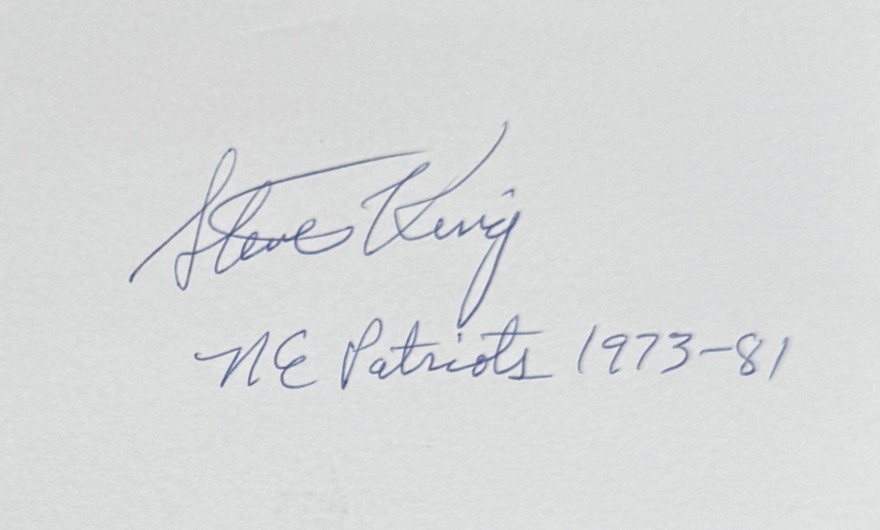 Steve King
NE Patriots 1973-81